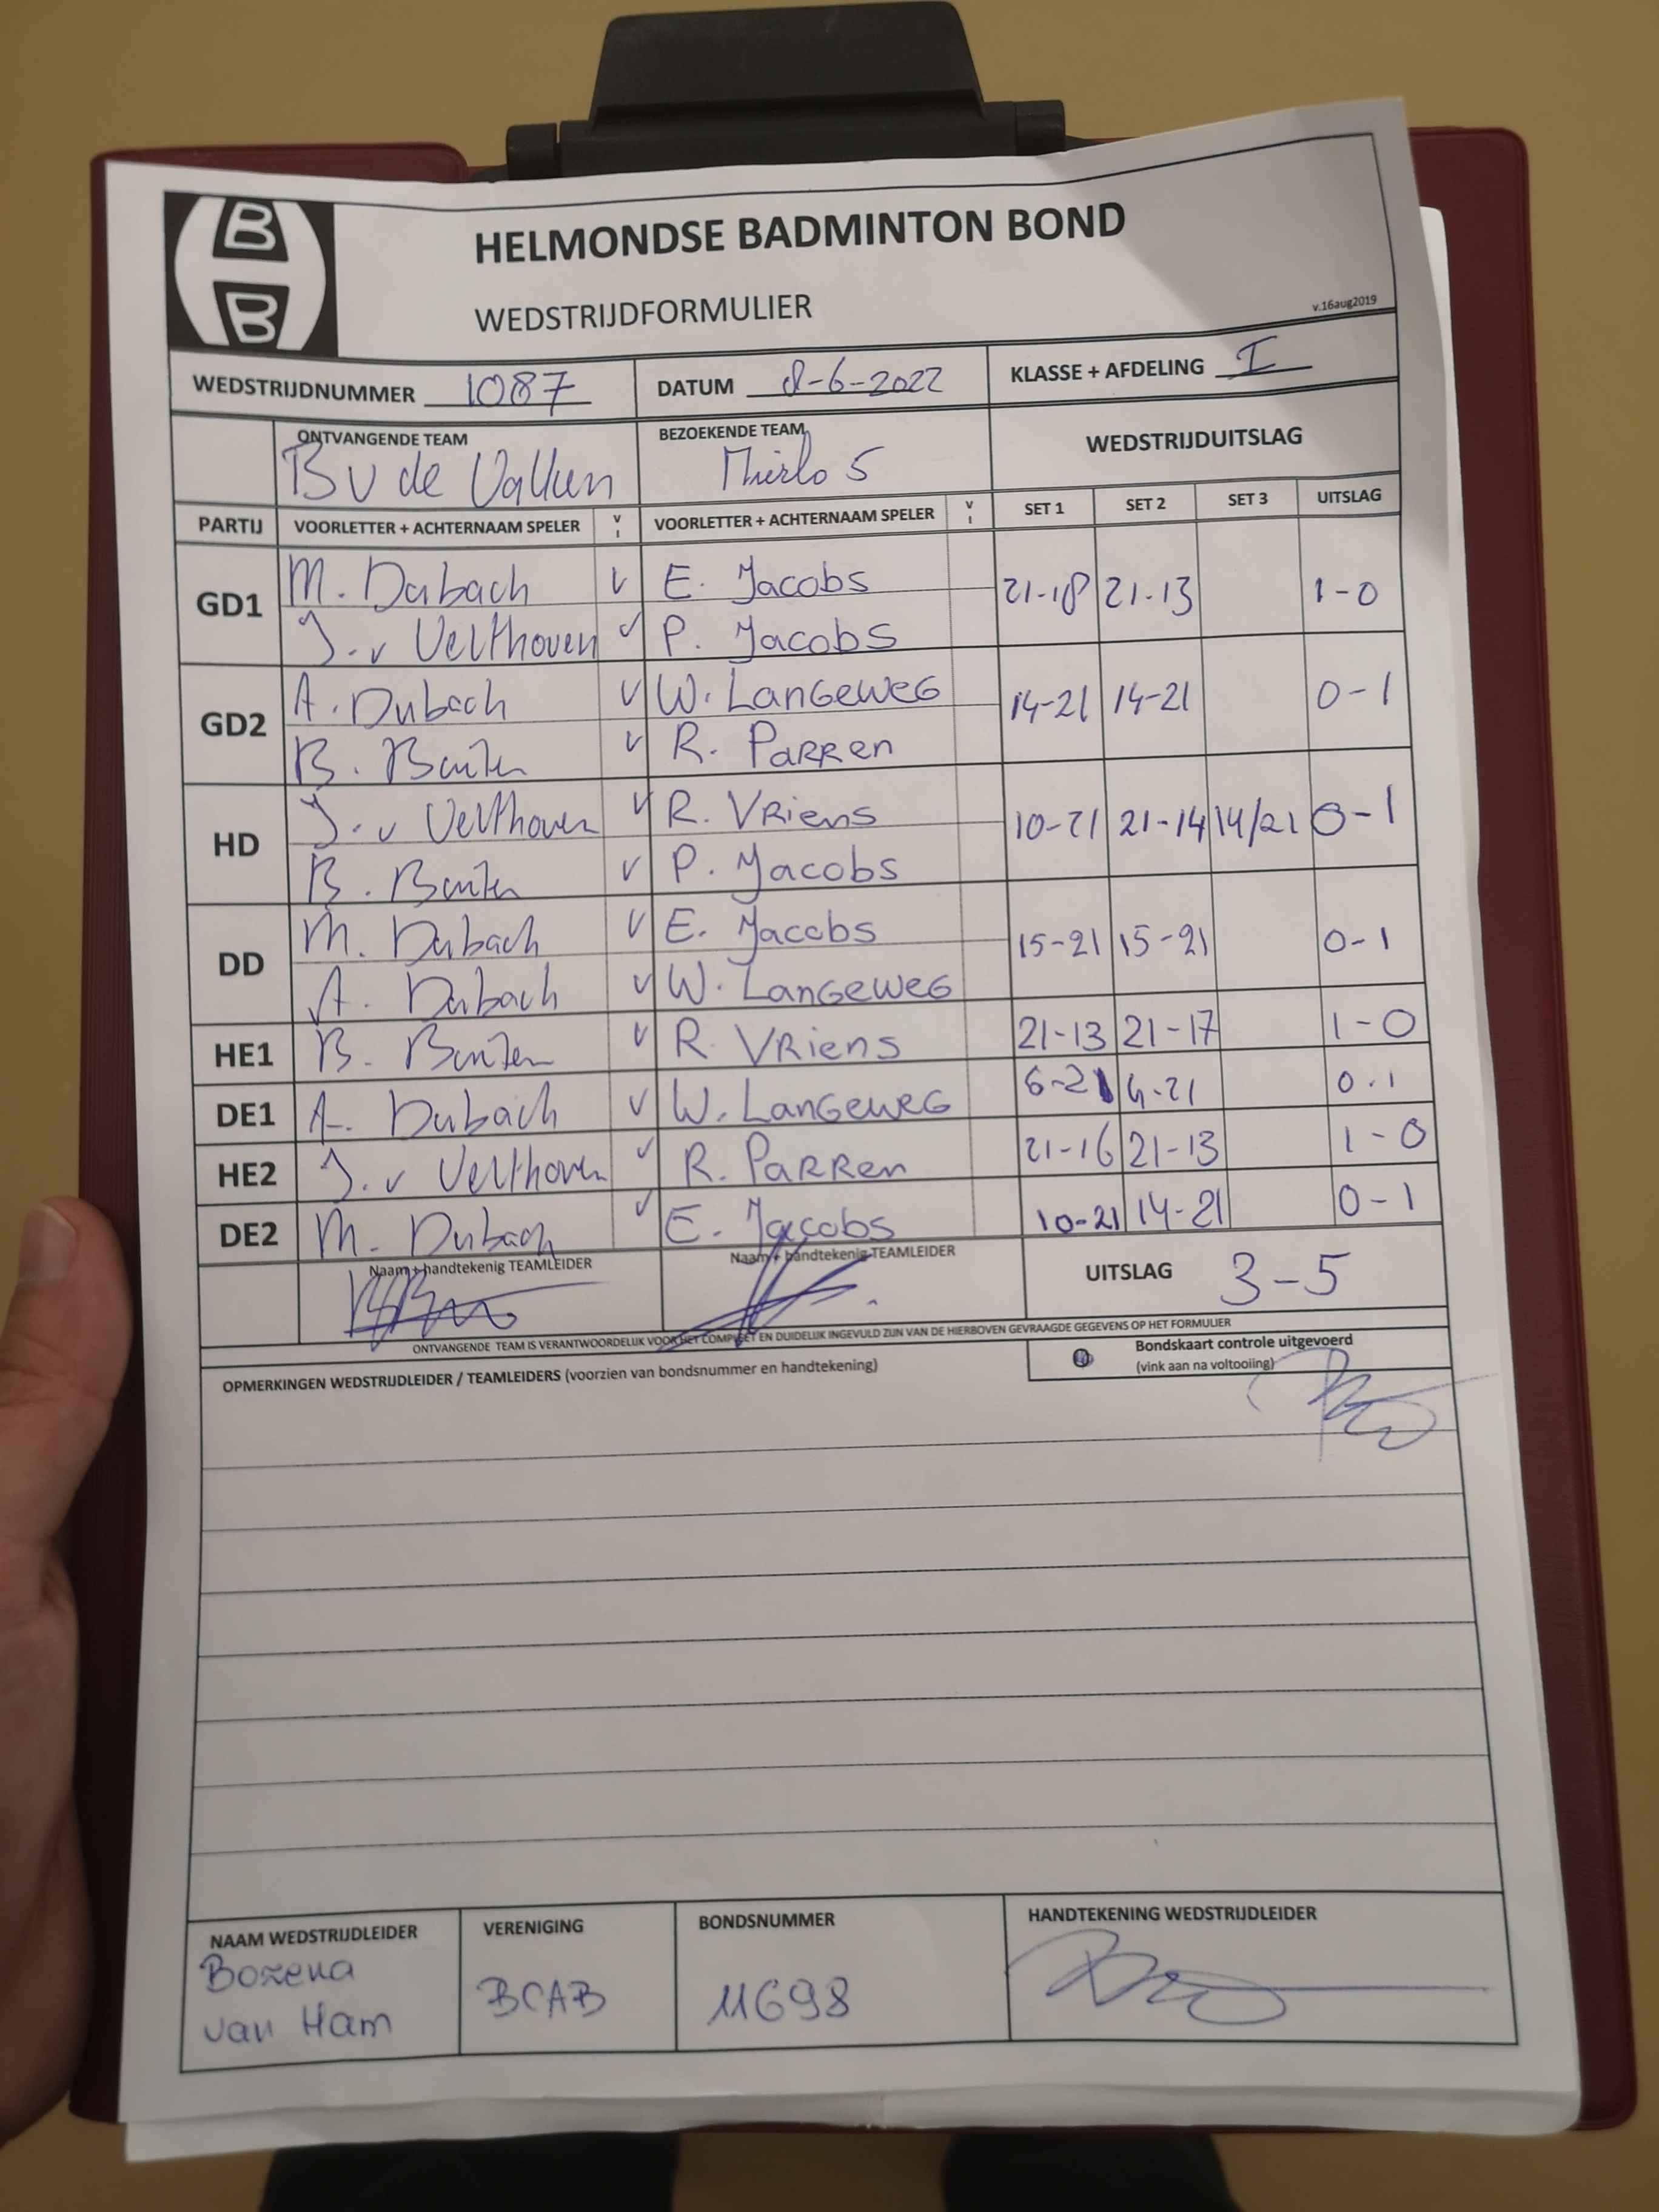 B
B
HELMONDSE BADMINTON BOND
WEDSTRIJDFORMULIER
v.16aug2019
WEDSTRIJDNUMMER 1087 DATUM 8-6-2022 KLASSE + AFDELING I
ONTVANGENDE TEAM BEZOEKENDE TEAM WEDSTRIJDUITSLAG
BV de Valken Mierlo 5
PARTIJ VOORLETTER + ACHTERNAAM SPELER V I VOORLETTER + ACHTERNAAM SPELER V I SET 1 SET 2 SET 3 UITSLAG
GD1 M. Dubach V E. Jacobs 21-18 21-13 1-0
J. v Velthoven V P. Jacobs
GD2 A. Dubach V W. LanGeweG 14-21 14-21 0-1
B. V R. PaRRen
HD J. v Velthoven V R. VRiens 10-21 21-14 14/21 0-1
B. V P. Jacobs
DD M. Dubach V E. Jacobs 15-21 15-21 0-1
A. Dubach V W. LanGeweG
HE1 B. V R. VRiens 21-13 21-17 1-0
DE1 A. Dubach V W. LanGeweG 6-21 4-21 0-1
HE2 J. v Velthoven V R. PaRRen 21-16 21-13 1-0
DE2 M. Dubach V E. Jacobs 10-21 14-21 0-1
Naam + handtekenig TEAMLEIDER Naam + handtekenig TEAMLEIDER UITSLAG 3-5
ONTVANGENDE TEAM IS VERANTWOORDELIJK VOOR HET COMPLEET EN DUIDELIJK INGEVULD ZIJN VAN DE HIERBOVEN GEVRAAGDE GEGEVENS OP HET FORMULIER
OPMERKINGEN WEDSTRIJDLEIDER / TEAMLEIDERS (voorzien van bondsnummer en handtekening)
Bondskaart controle uitgevoerd
(vink aan na voltooiing)
NAAM WEDSTRIJDLEIDER VERENIGING BONDSNUMMER HANDTEKENING WEDSTRIJDLEIDER
Bozena
van Ham BCAB 11698